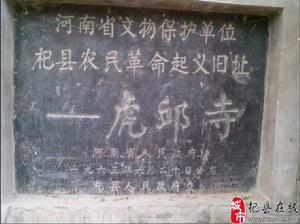 河南省文物保护单位
杞县农民革命起义旧址
—虎邱寺
河南省人民政府
一九六三年六月二十日公布
杞县人民政府立
城市 杞县在线